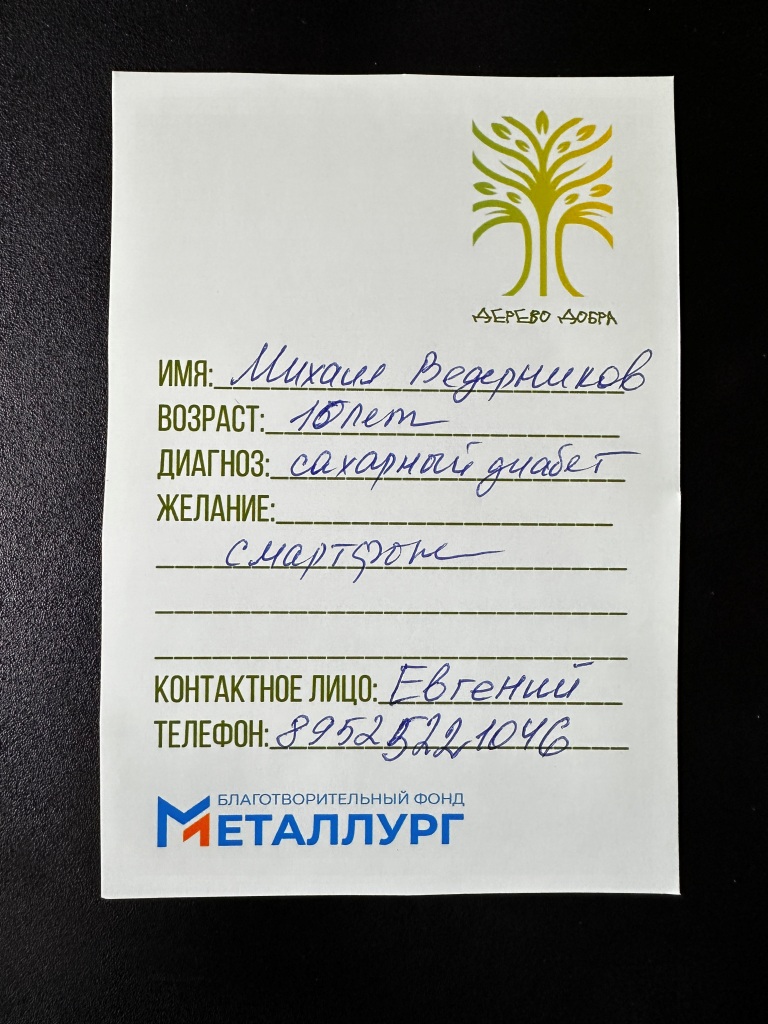 ДЕРЕВО ДОБРА
ИМЯ: Михаил Ведерников
ВОЗРАСТ: 10 лет
ДИАГНОЗ: сахарный диабет
ЖЕЛАНИЕ:
смартфон
КОНТАКТНОЕ ЛИЦО: Евгений
ТЕЛЕФОН: 89525221046
БЛАГОТВОРИТЕЛЬНЫЙ ФОНД
МЕТАЛЛУРГ